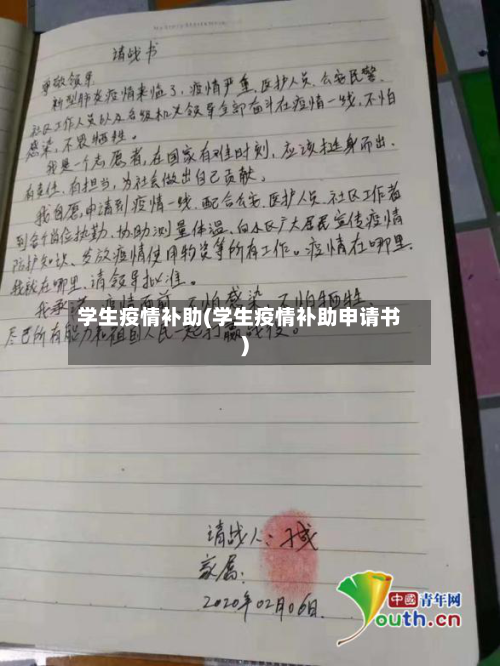 请战书
尊敬领导
新型肺炎疫情来临了,疫情严重,医护人员、公安民警、
社区工作人员以及各级机关领导全部奋斗在疫情一线,不怕
感染,不畏牺牲。
我是一个志愿者,在国家有难时刻,应该挺身而出,
有责任,有担当,为社会做出自己贡献。
我自愿申请到疫情一线,配合公安、医护人员、社区工作者
到各岗位执勤,协助测量体温、向小区广大居民宣传疫情
防护知识、发放疫情使用物资等所有工作。疫情在哪里
我就在哪里,请领导批准。
我承诺,疫情面前,不怕感染,不怕牺牲,
尽己所有能力和祖国人民一起打赢战役。
学生疫情补助(学生疫情补助申请书
)
请战人:
家属:
2020年02月06日.
中國青年网
Youth.cn